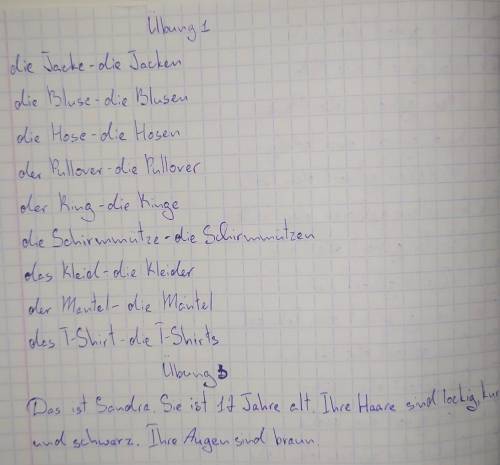 Übung 1
die Jacke - die Jacken
die Bluse - die Blusen
die Hose - die Hosen
der Pullover - die Pullover
der Ring - die Ringe
die Schirmmütze - die Schirmmützen
das Kleid - die Kleider
der Mantel - die Mäntel
das T-Shirt - die T-Shirts
Übung 5
Das ist Sandra. Sie ist 17 Jahre alt. Ihre Haare sind lockig, kur
und schwarz. Ihre Augen sind braun.